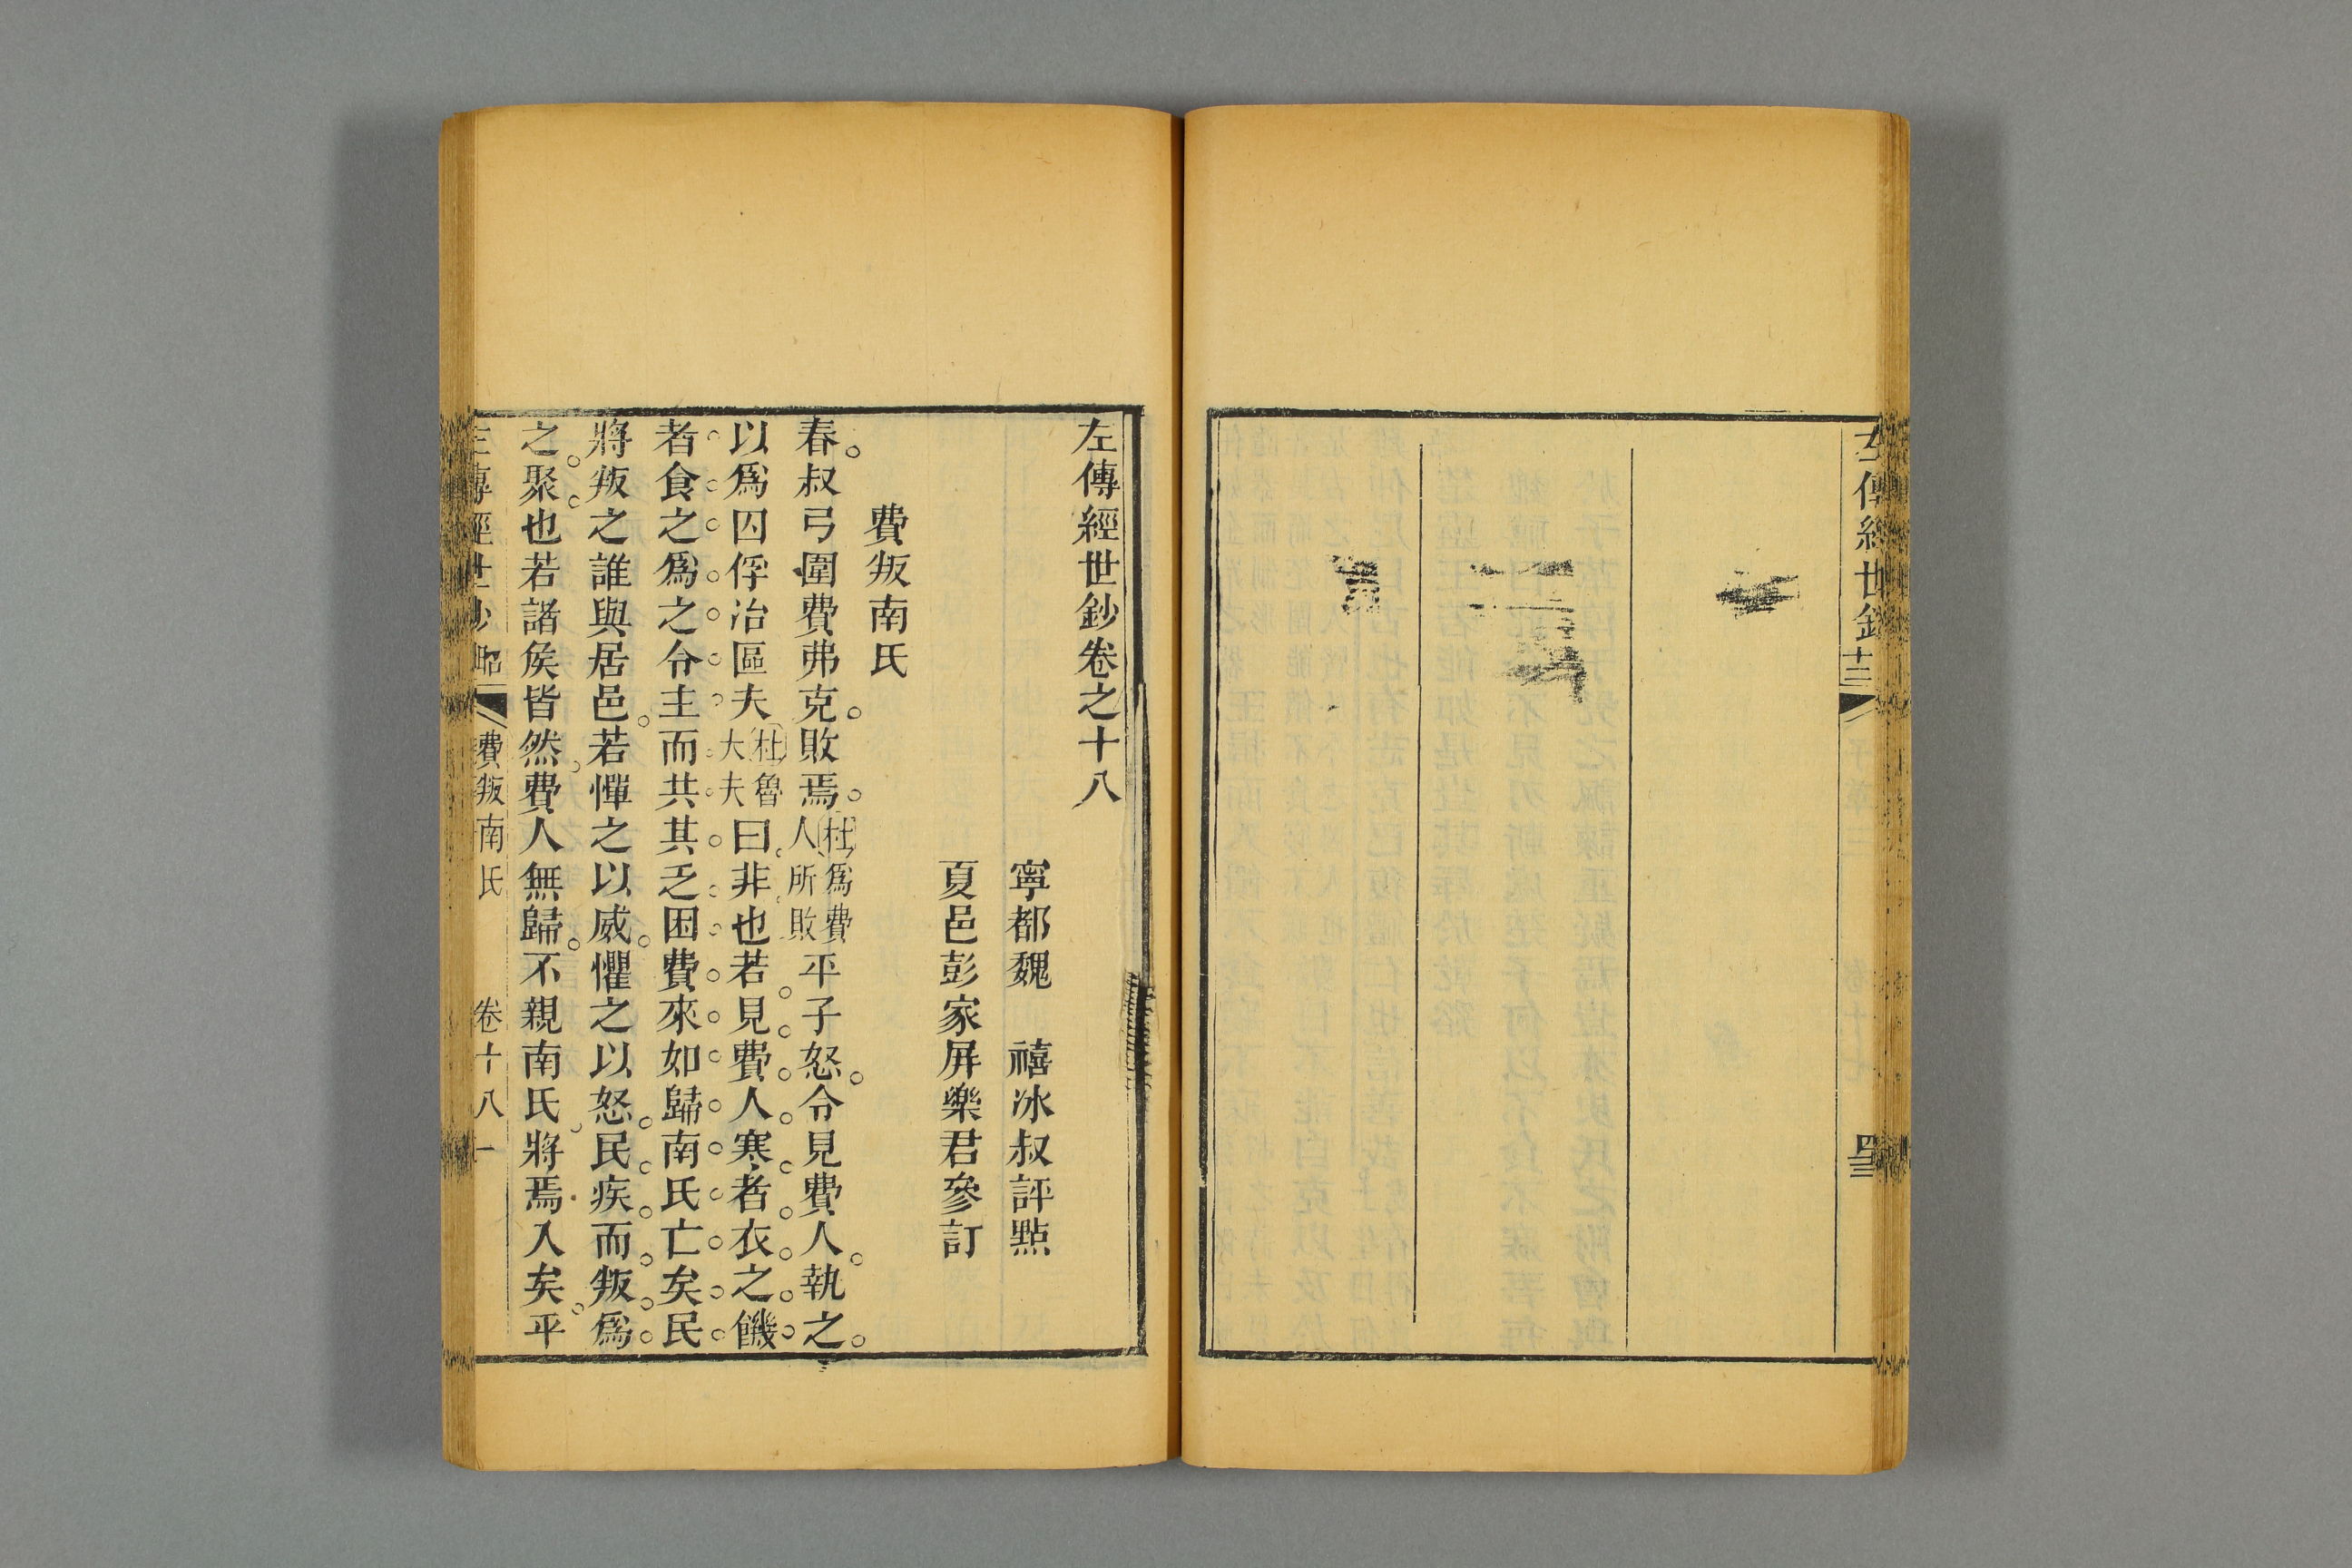 左傳經世鈔卷之十八
寧都魏　禧冰叔評點
夏邑彭家屏樂君參訂
費叛南氏
春叔弓圍費弗克敗焉杜爲費人所敗平子怒令見費人執之
以爲囚俘冶區夫杜魯大夫曰非也若見費人寒者衣之饑
者食之爲之令主而共其乏困費來如歸南氏亡矣民
將叛之誰與居邑若憚之以威懼之以怒民疾而叛爲
之聚也若諸侯皆然費人無歸不親南氏將焉入矣平
左傳經世鈔　費叛南氏　卷十八　一